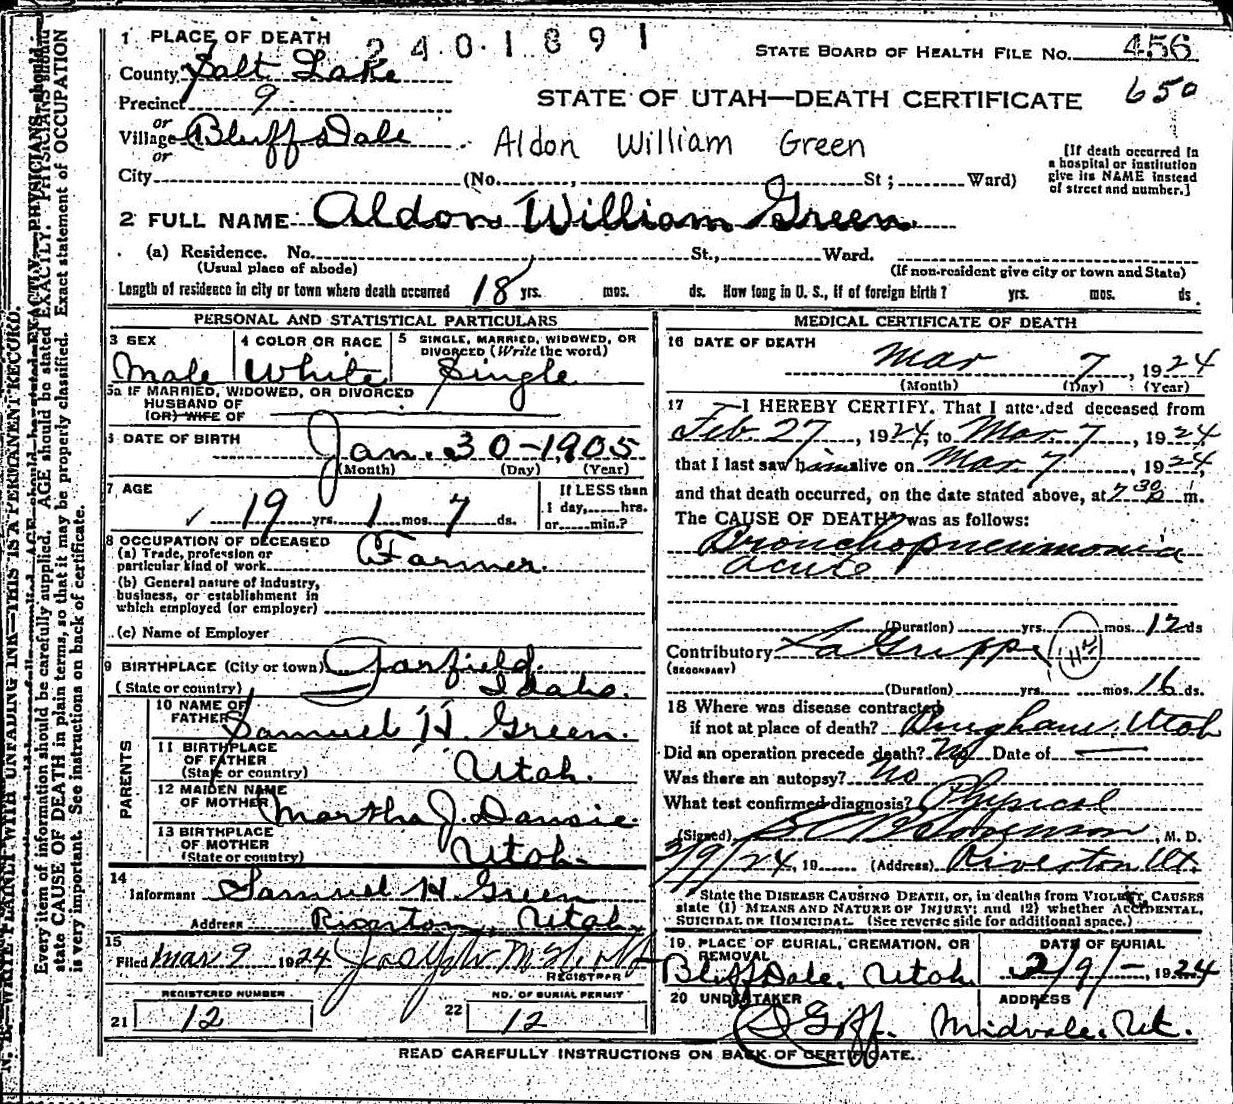 N. B.—WRITE PLAINLY WITH UNFADING INK—THIS IS A PERMANENT RECORD.
Every item of information should be carefully supplied. AGE should be stated EXACTLY. PHYSICIANS should
state CAUSE OF DEATH in plain terms, so that it may be properly classified. Exact statement of OCCUPATION
is very important. See instructions on back of certificate.
1 PLACE OF DEATH 2401891 STATE BOARD OF HEALTH FILE NO. 456
County Salt Lake
650
Precinct 9 STATE OF UTAH—DEATH CERTIFICATE
or
Village Bluff Dale Aldon William Green
or
[If death occurred in
a hospital or institution
give its NAME instead
of street and number.]
City (No. , St ; Ward)
2 FULL NAME Aldon William Green
(a) Residence. No. St., Ward.
(Usual place of abode) (If non-resident give city or town and State)
Length of residence in city or town where death occurred 18 yrs. mos. ds. How long in U. S., if of foreign birth? yrs. mos. ds.
PERSONAL AND STATISTICAL PARTICULARS
3 SEX 4 COLOR OR RACE 5 SINGLE, MARRIED, WIDOWED, OR
DIVORCED (Write the word)
Male White Single
5a IF MARRIED, WIDOWED, OR DIVORCED
HUSBAND OF
(OR) WIFE OF
6 DATE OF BIRTH Jan. 30-1905
(Month) (Day) (Year)
7 AGE If LESS than
1 day, hrs.
19 yrs. 1 mos. 7 ds. or min.?
8 OCCUPATION OF DECEASED
(a) Trade, profession or
particular kind of work Farmer
(b) General nature of industry,
business, or establishment in
which employed (or employer)
(c) Name of Employer
9 BIRTHPLACE (City or town) Garfield
(State or country) Idaho.
PARENTS
10 NAME OF
FATHER Samuel H. Green.
11 BIRTHPLACE
OF FATHER
(State or country) Utah.
12 MAIDEN NAME
OF MOTHER Martha J. Dansie.
13 BIRTHPLACE
OF MOTHER
(State or country) Utah.
14
Informant Samuel H. Green
Address Riverton, Utah,
15
Filed Mar 9 1924 Joseph
REGISTRAR
REGISTERED NUMBER NO. OF BURIAL PERMIT
21 12 22 12
MEDICAL CERTIFICATE OF DEATH
16 DATE OF DEATH
Mar 7, 1924
(Month) (Day) (Year)
17 I HEREBY CERTIFY. That I attended deceased from
Feb. 27, 1924, to Mar. 7, 1924
that I last saw him alive on Mar. 7, 1924,
and that death occurred, on the date stated above, at 7 30 P m.
The CAUSE OF DEATH* was as follows:
Bronchopneumonia
acute
(Duration) yrs. mos. 12 ds
Contributory La Grippe
(SECONDARY)
(Duration) yrs. mos. 16 ds.
18 Where was disease contracted
if not at place of death? Bingham, Utah
Did an operation precede death? No Date of
Was there an autopsy? No
What test confirmed diagnosis? Physical
(Signed) , M. D.
3/9/24, 19 (Address) Riverton Ut.
State the DISEASE CAUSING DEATH, or, in deaths from VIOLENT CAUSES
state (1) MEANS AND NATURE OF INJURY; and (2) whether ACCIDENTAL,
SUICIDAL OR HOMICIDAL. (See reverse side for additional space.)
19 PLACE OF BURIAL, CREMATION, OR
REMOVAL DATE OF BURIAL
Bluff Dale, Utah 3/9/- 1924
20 UNDERTAKER ADDRESS
D Goff. Midvale. Ut.
READ CAREFULLY INSTRUCTIONS ON BACK OF CERTIFICATE.